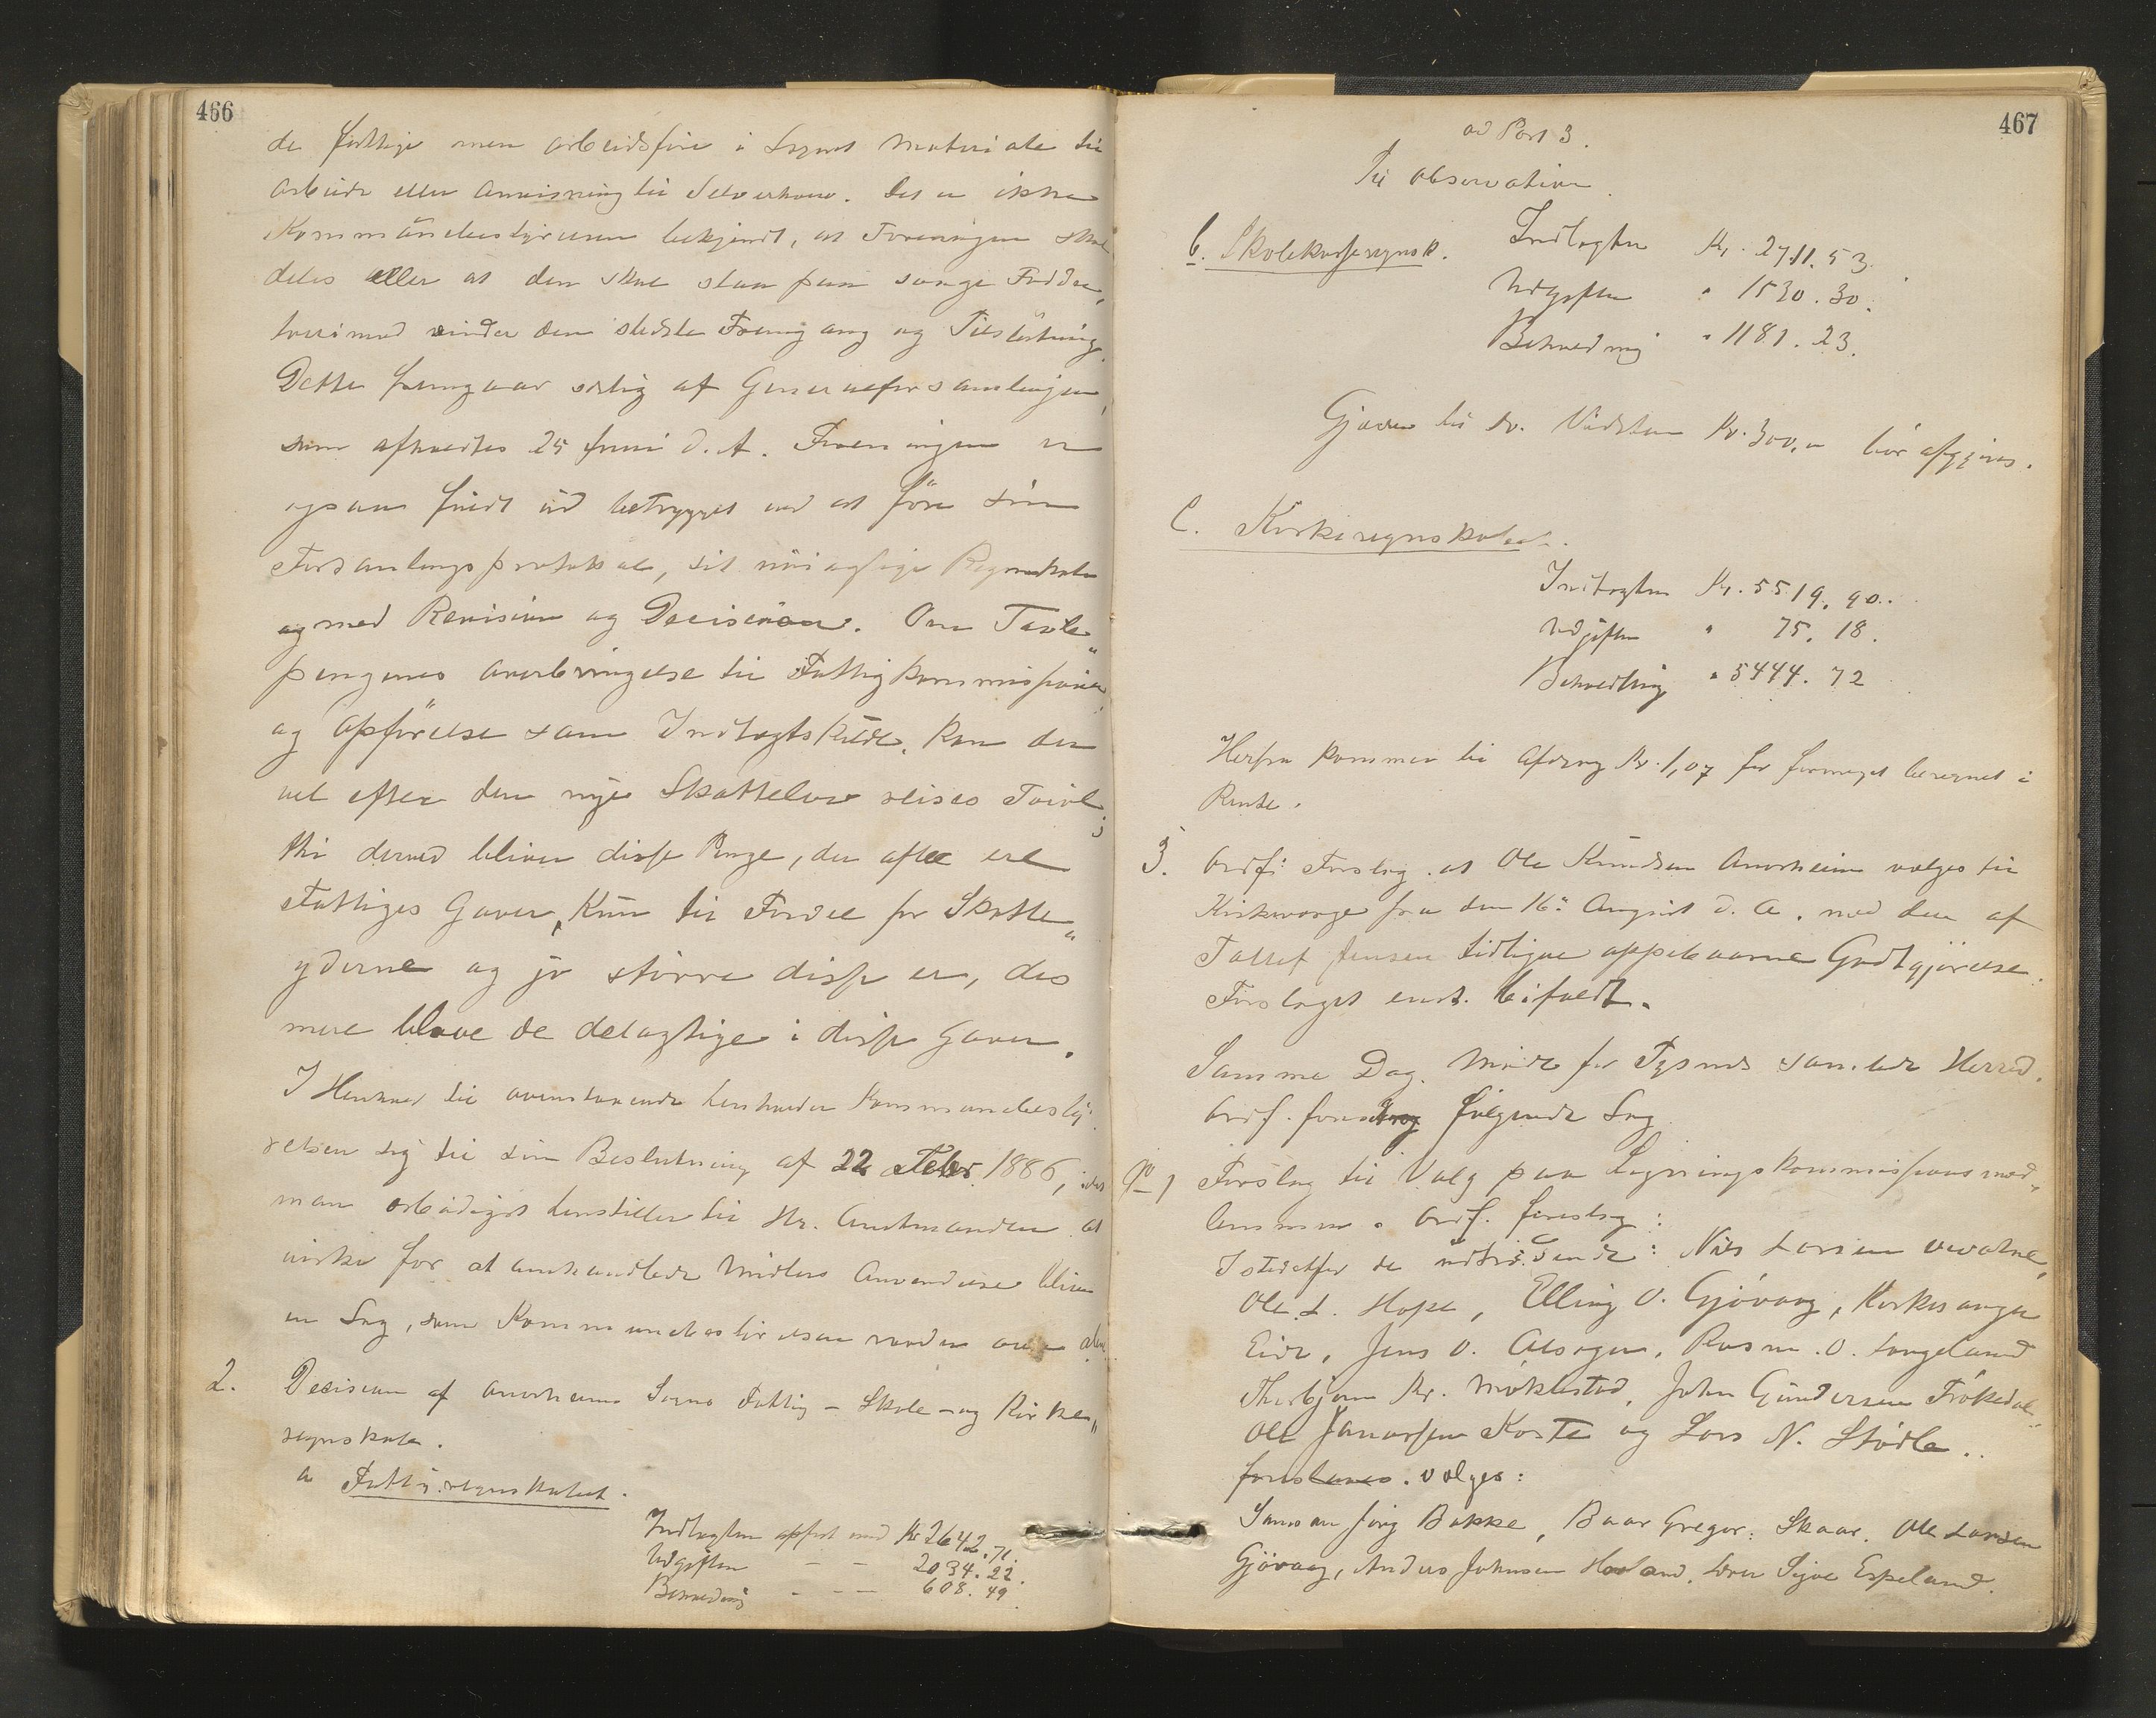 466
de fattige men arbeidsföre i Sognet Materiale til
Arbeide eller Anvisning til Selverhverv. Det er ikke
Kommünebestyrelsen bekjendt, at Foreningen skal
deles eller at den skal staa paa svage Födder,
tverimod vinder den stedste Fremgang og Tilslütning.
Dette fremgaar særlig af Generalforsamlingen,
som afholdtes 25 Juni d. A. Foreningen er
ogsaa füldt üd betrygget ved at före sin
Forsamlingsprotokol, sit nöiagtige Regnskab
og med Revision og Decision. Om Tavle"
pengenes Overbringelse til Fattigkommissionen
og Opförelse som Indtægtskilde, kan der
vel efter den nye Skattelov reises Tvivl;
thi derved bliver disse Penge, der ofte ere
Fattiges Gaver, kün til Fordel for Skatte"
yderne og jo större disse er, des
mere blive de delagtige i disse Gaver.
I Henhold til ovenstaaende henholder Kommunebesty"
relsen sig til sin Beslutning af 22 Febr. 1886, idet
man ærbödigst henstiller til Hr. Amtmanden at
virke for at omhandlede Midlers Anvendelse bliver
en Sag, som Kommunebestÿrelsen raader over alene.
2. Decision af Aarheims Sogns Fattig - Skole - og Kirke"
regnskab.
a Fattigregnskabet.
Indtægten opfört med Kr 2642.71.
Udgiften - - 2034.22.
Beholdning - - - 608.49.
467
ad Post 3.
Til Observation.
b. Skolekasseregnsk. Indtægten Kr. 2711.53.
Udgiften " 1530.30.
Beholdning " 1181.23.
Gjælden til Kr. 300, bör afgjöres.
C. Kirkeregnskabet.
Indtægten Kr. 5519.90.
Udgiften " 75.18.
Beholdning " 5444.72
Herfra kommer til Afdrag Kr. 1,07 for formeget beregnet i
Rente.
3. Ordf: Forslag at Ole Knüdsen Aarheim vælges til
Kirkeværge fra den 16de Augüst d. A. med den af
Tollef Jensen tidligere oppebaarne Godtgjörelse.
Forslaget enst. bifaldt.
Samme Dag Möde for Tysnæs samlede Herred.
Ordf. foredrog fölgende Sag
No 1 Forslag til Valg paa Ligningskommissionsmed"
lemmer. Ordf. foreslog:
Istedetfor de üdtrædende: Nils Larsen Uvatne,
Ole L. Hope, Elling O. Gjövaag, Kirkesanger
Eide, Jens O. Alsager, Rasm. O. Langeland
Thorbjörn Kr. Möklestad, John Gündersen Frökedal"
Ole Jvarssen Koste og Lars N. Stödle..
foreslaaes. vælges:
Samson Jörg Bakke, Baar Gregor: Skaar, Ole Larsen
Gjövaag, Anders Johnsen Hovland, Lærer Sjur Espeland.